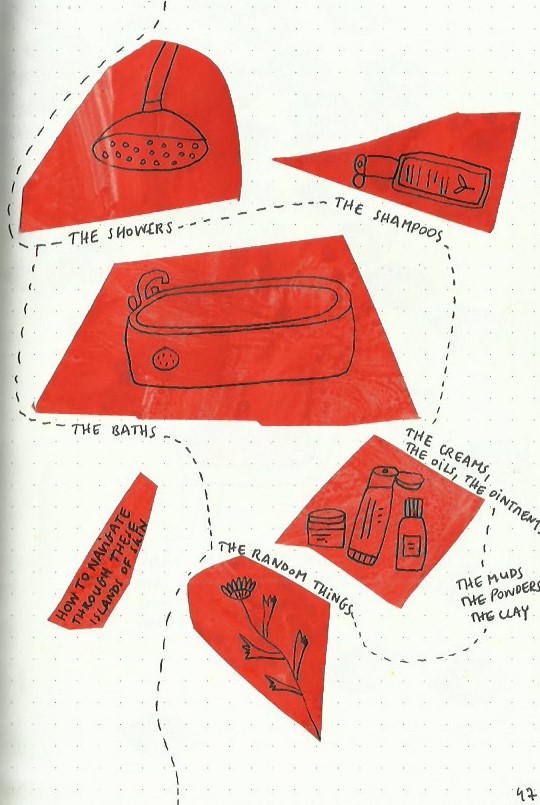 THE SHOWERS
THE SHAMPOOS
THE BATHS
THE CREAMS,
THE OILS, THE OINTMENTS
HOW TO NAVIGATE
THROUGH THESE
ISLANDS OF SKIN
THE RANDOM THINGS
THE MUDS
THE POWDERS
THE CLAY
47